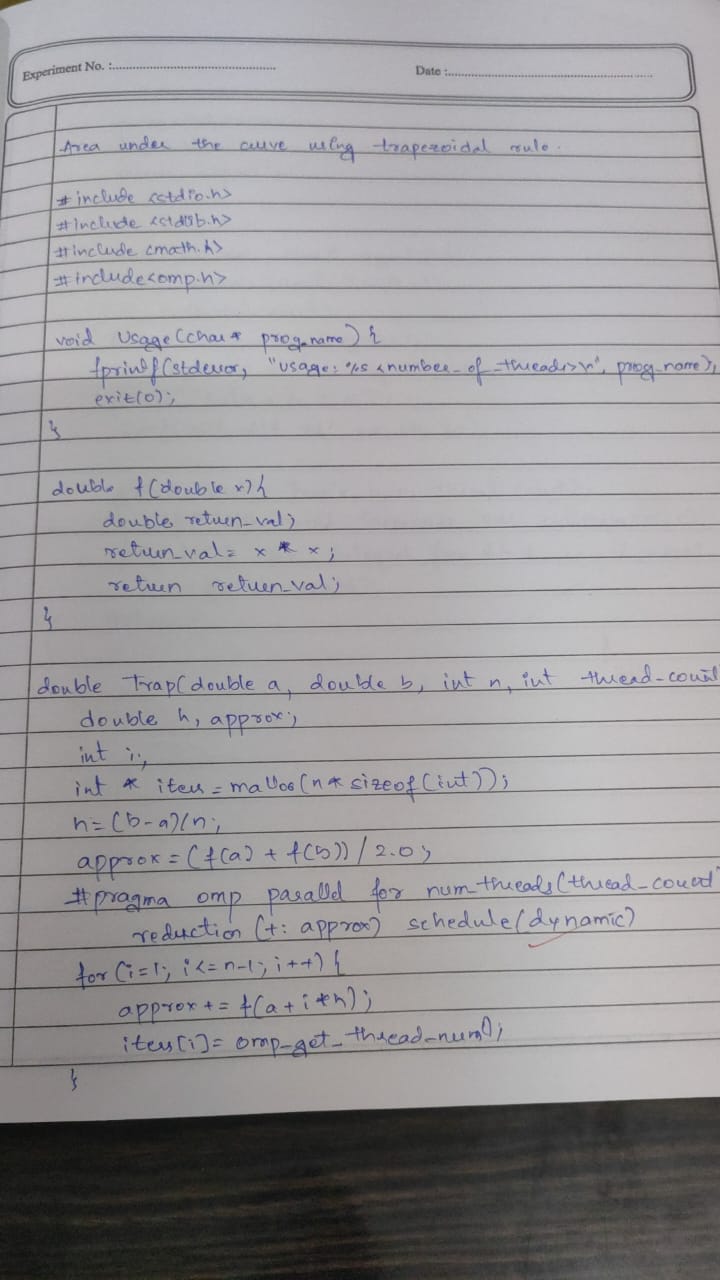 Experiment No. :
Date :
Area under the curve using trapezoidal rule.
#include <stdio.h>
#include <stdlib.h>
#include <math.h>
#include<omp.h>
void Usage(char* prog_name) {
fprintf(stderror, "usage: %s <number_of_threads>\n", prog_name);
exit(0);
}
double f(double x){
double return_val;
return_val = x * x;
return return_val;
}
double Trap(double a, double b, int n, int thread_count
double h, approx;
int i;
int * iters = malloc(n * sizeof(int));
h=(b-a)/n;
approx = (f(a) + f(b)) / 2.0;
#pragma omp parallel for num_threads(thread_count
reduction (+: approx) schedule(dynamic)
for (i=1; i<=n-1; i++) {
approx += f(a+i*h);
iters[i]= omp_get_thread_num();
}